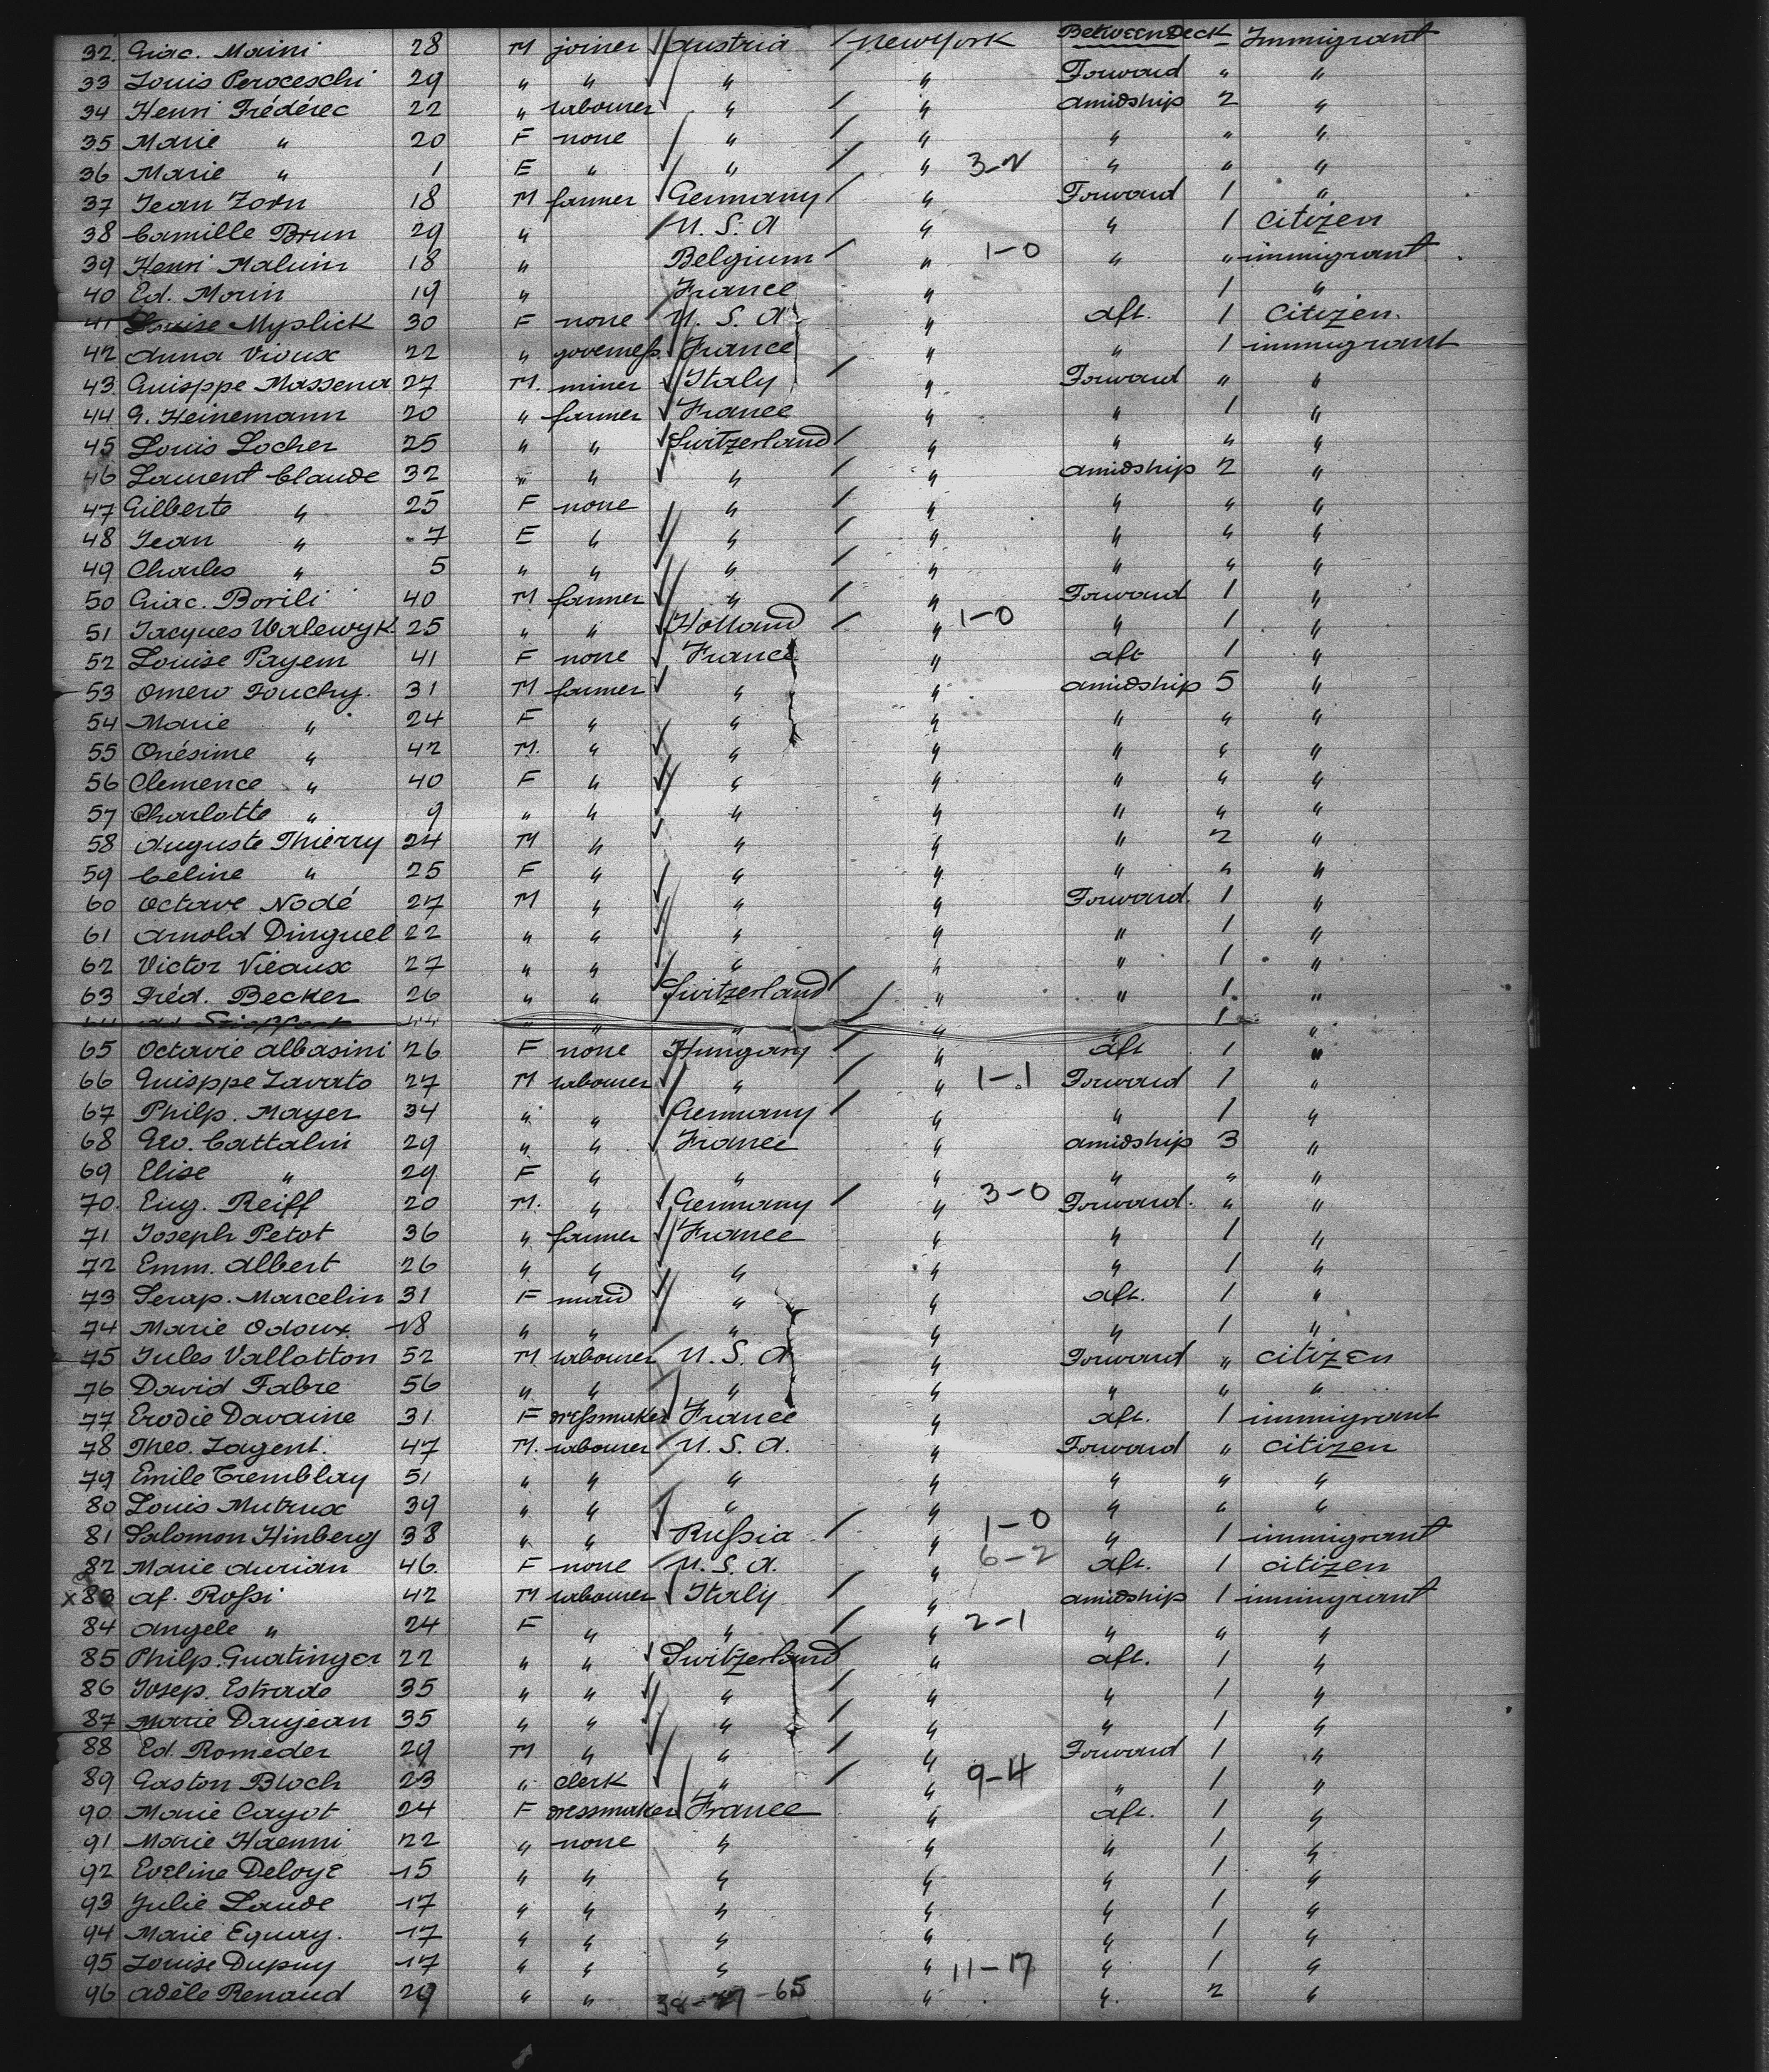 Between Deck
32. Giac. Maini 28 M joiner Austria New York Immigrant
33 Louis Peroceschi 29 " " " " Forward " "
34 Henri Frédérec 22 " labourer " " amidship 2 "
35 Marie " 20 F none " " " " "
36 Marie " 1 E " " " 3-2 " " "
37 Jean Zorn 18 M farmer Germany " Forward 1 "
38 Camille Brun 29 " U.S.A " " 1 Citizen
39 Henri Maluin 18 " Belgium " 1-0 " " immigrant
40 Ed. Morin 19 " France " 1 "
41 Louise Myslick 30 F none U.S.A. " aft. 1 Citizen.
42 Anna Vioux 22 " governess France " " 1 immigrant
43. Guisppe Massena 27 M. miner Italy " Forward " "
44 G. Heinemann 20 " farmer France " " 1 "
45 Louis Locher 25 " " Switzerland " " " "
46 Laurent Claude 32 " " " " amidship 2 "
47 Gilberte " 25 F none " " " " "
48 Jean " 7 E " " " " " "
49 Charles " 5 " " " " " " "
50 Giac. Borili 40 M farmer " " Forward 1 "
51 Jacques Walewyk. 25 " " Holland " 1-0 " 1 "
52 Louise Payem 41 F none France " aft 1 "
53 Omero Fouchy. 31 M farmer " " amidship 5 "
54 Marie " 24 F " " " " " "
55 Onésime " 42 M. " " " " " "
56 Clemence " 40 F " " " " " "
57 Charlotte " 9 " " " " " " "
58 Auguste Thierry 24 M " " " " 2 "
59 Céline " 25 F " " " " " "
60 Octave Nodé 27 M " " " Forward. 1 "
61 Arnold Dinguel 22 " " " " " 1 "
62 Victor Viéaux 27 " " " " " 1 "
63 Fréd. Becker 26 " " Switzerland " " 1. "
44 " " " " 1 "
65 Octavie Albasini 26 F none Hungary " aft 1 "
66 Guisppe Zavato 27 M labourer " " 1-1 Forward 1 "
67 Philp. Mayer 34 " " Germany " " 1 "
68 Geo. Cattalin 29 " " France " amidship 3 "
69 Elise " 29 F " " " " " "
70. Eug. Reiff 20 M. " Germany " 3-0 Forward. " "
71 Joseph Petot 36 " farmer France " " 1 "
72 Emm. Albert 26 " " " " " 1 "
73 Serap. Marcelin 31 F maid " " aft. 1 "
74 Marie Odoux. 18 " " " " " 1 "
75 Jules Vallotton 52 M labourer U.S.A " Forward " citizen
76 David Fabre 56 " " " " " " "
77 Erodie Davaine 31 F dressmaker France " aft. 1 immigrant
78 Theo. Zagent. 47 M. labourer U.S.A. " Forward " citizen
79 Emile Tremblay 51 " " " " " " "
80 Louis Mutrux 39 " " " " " " "
81 Salomon Hinberg 38 " " Russia " 1-0 " 1 immigrant
82 Marie Aurian 46. F none U.S.A. " 6-2 aft. 1 citizen
x 83 Af. Rossi 42 M labourer Italy " amidship 1 immigrant
84 Angele " 24 F " " " 2-1 " " "
85 Philp. Guatinger 22 " " Switzerland " aft. 1 "
86 Josep. Estrade 35 " " " " " 1 "
87 Marie Daujean 35 " " " " " 1 "
88 Ed. Romeder 29 M " " " Forward 1 "
89 Gaston Bloch 23 " clerk " " 9-4 " 1 "
90 Marie Cayot 24 F dressmaker France " aft. 1 "
91 Marie Haenni 22 " none " " " 1 "
92 Eveline Deloye 15 " " " " " 1 "
93 Julie Laude 17 " " " " " 1 "
94 Marie Equay. 17 " " " " " 1 "
95 Louise Dupuy 17 " " " " 11-17 " 1 "
96 Adèle Renaud 29 " " 38-27-65 " " 2 "